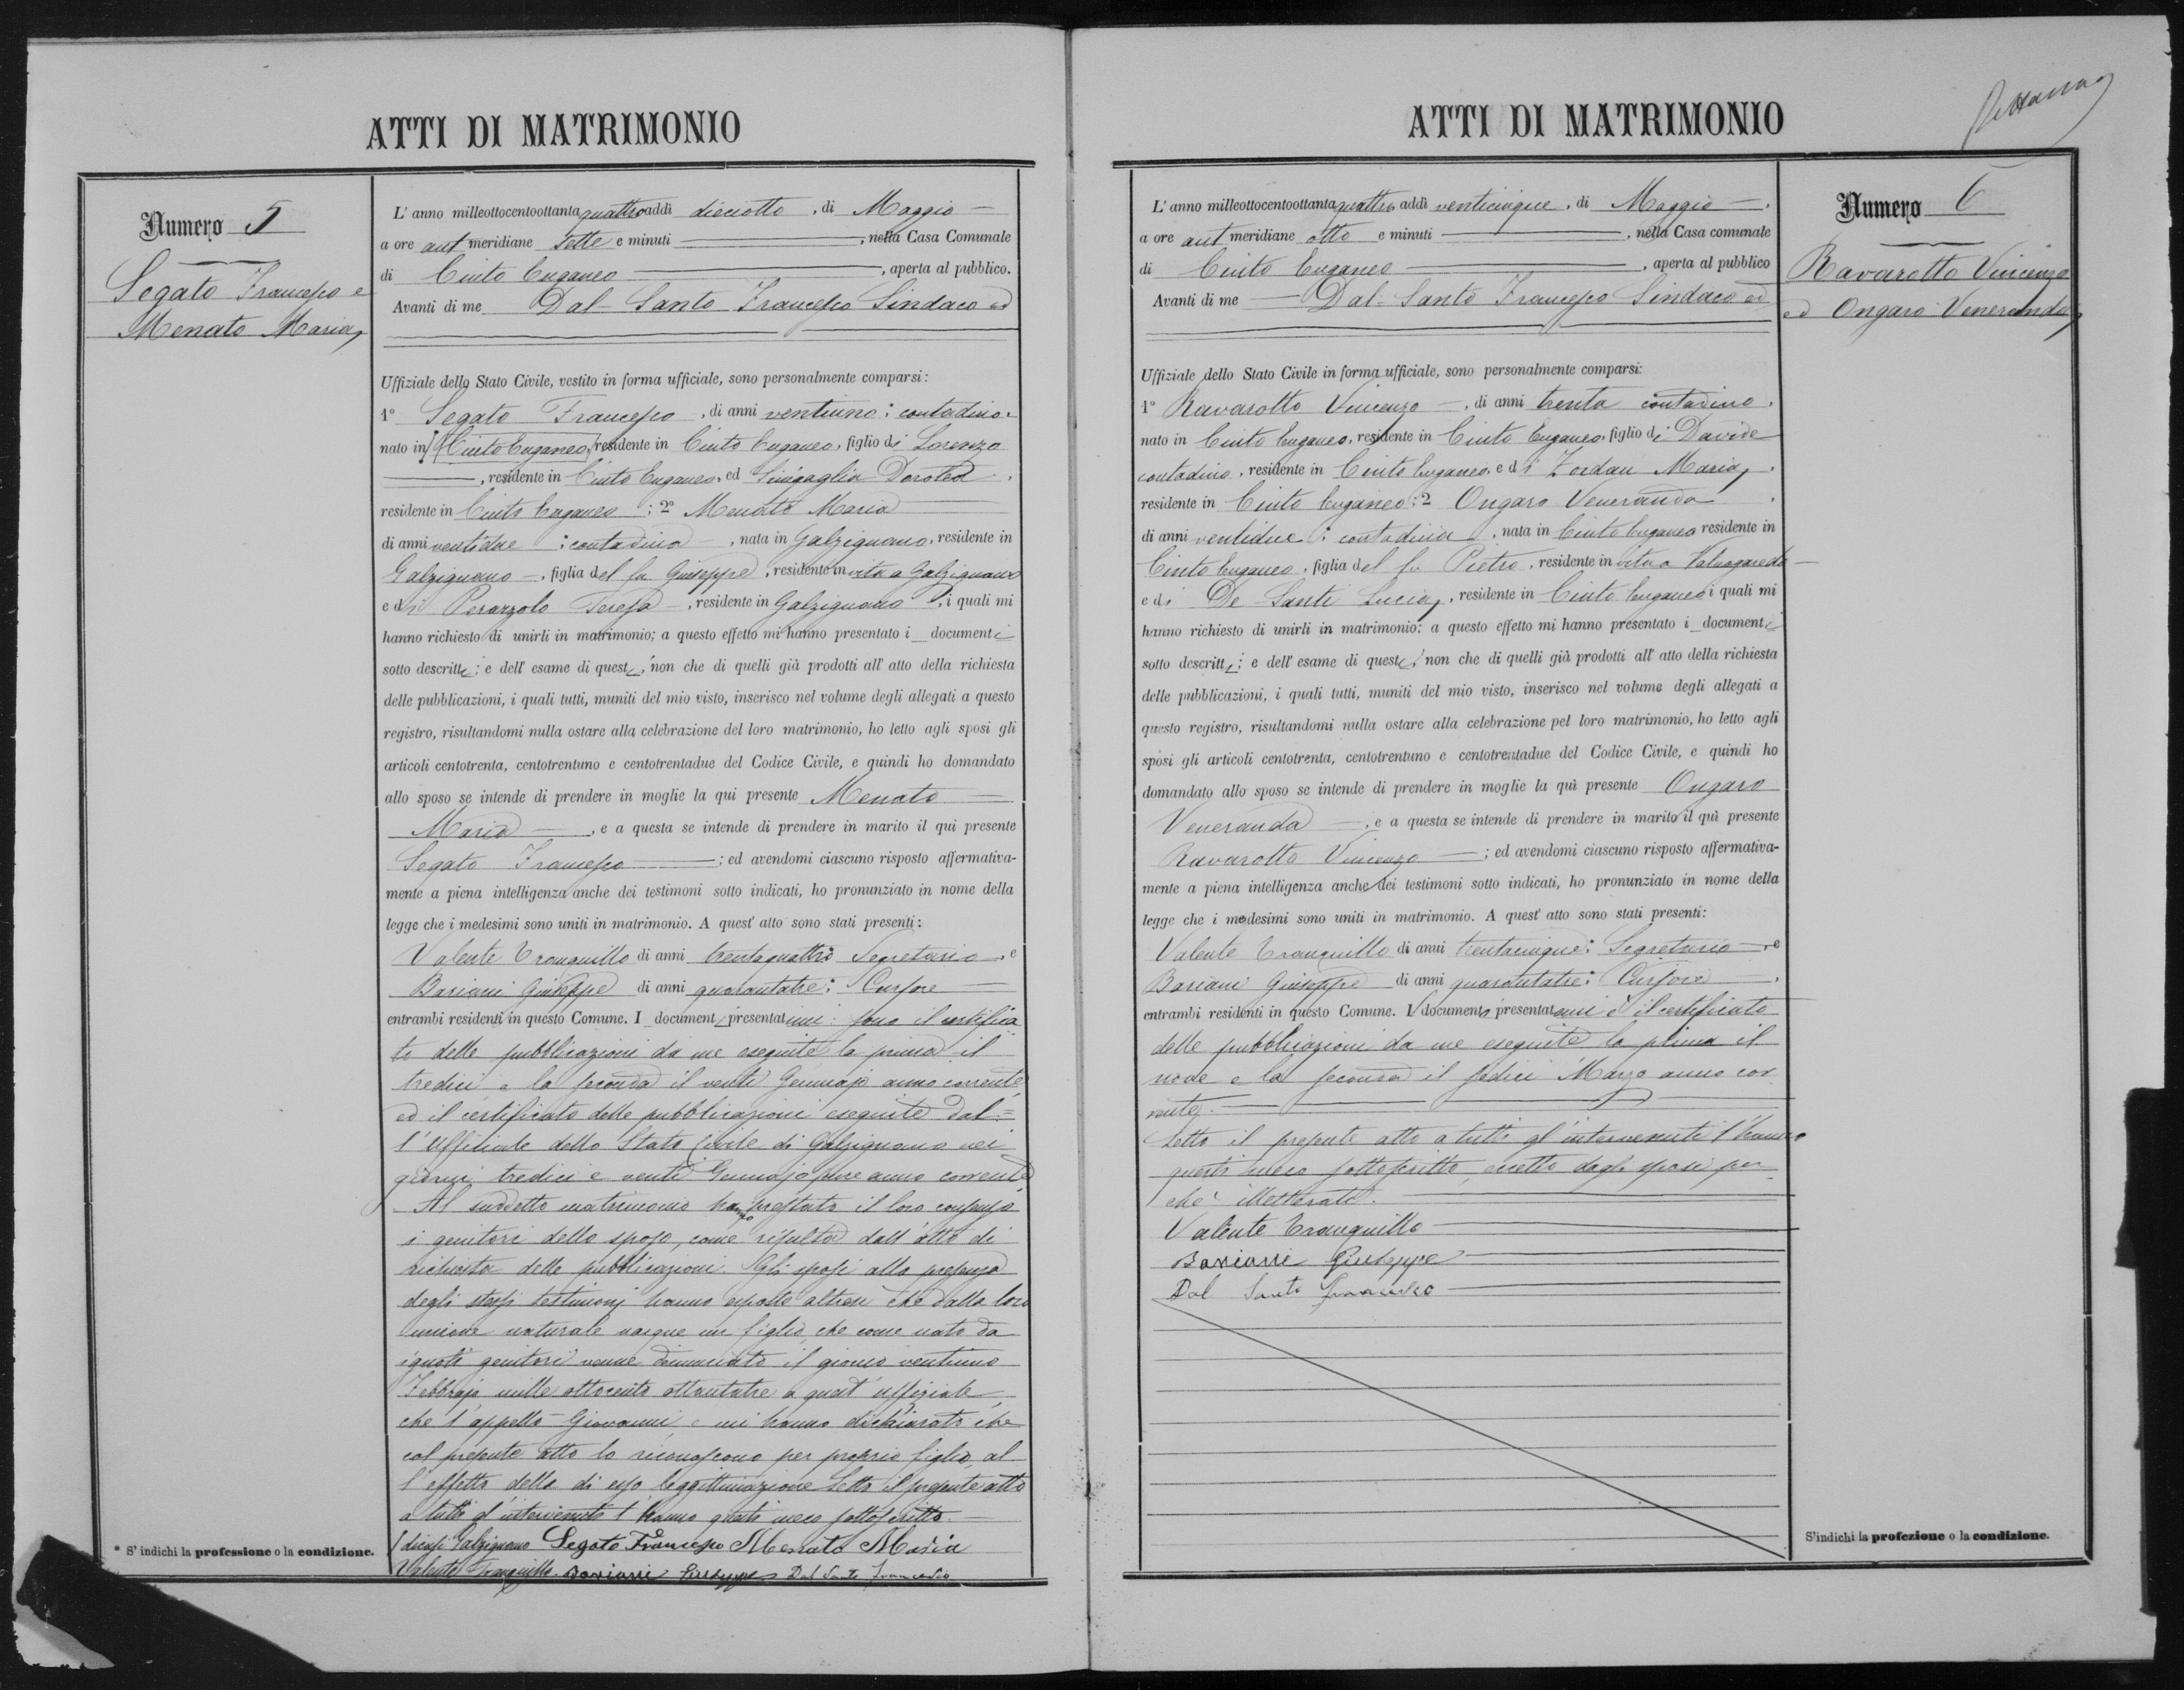 ATTI DI MATRIMONIO
Numero 5
Segato Francesco e
Menato Maria
L'anno milleottocentoottantaquattro addì dieciotto, di Maggio
a ore antmeridiane sette e minuti , nella Casa Comunale
di Cinto Euganeo , aperta al pubblico.
Avanti di me Dal Santo Francesco Sindaco ed
Uffiziale dello Stato Civile, vestito in forma ufficiale, sono personalmente comparsi:
1º Segato Francesco , di anni ventiuno ; contadino
nato in Cinto Euganeo, residente in Cinto Euganeo, figlio di Lorenzo
, residente in Cinto Euganeo, ed Sinigaglia Dorotea
residente in Cinto Euganeo ; 2º Menato Maria
di anni ventidue ; contadina , nata in Galzignano, residente in
Galzignano , figlia del fu Giuseppe , residente in vita a Galzignano
e di Perazzolo Teresa , residente in Galzignano ; i quali mi
hanno richiesto di unirli in matrimonio; a questo effetto mi hanno presentato i documenti
sotto descritti; e dell' esame di questi, non che di quelli già prodotti all' atto della richiesta
delle pubblicazioni, i quali tutti, muniti del mio visto, inserisco nel volume degli allegati a questo
registro, risultandomi nulla ostare alla celebrazione del loro matrimonio, ho letto agli sposi gli
articoli centotrenta, centotrentuno e centotrentadue del Codice Civile, e quindi ho domandato
allo sposo se intende di prendere in moglie la qui presente Menato
Maria , e a questa se intende di prendere in marito il qui presente
Segato Francesco ; ed avendomi ciascuno risposto affermativa-
mente a piena intelligenza anche dei testimoni sotto indicati, ho pronunziato in nome della
legge che i medesimi sono uniti in matrimonio. A quest' atto sono stati presenti:
Valente Tranquillo di anni trentaquattro Segretario , e
Bariani Giuseppe di anni quarantatre ; Cursore
entrambi residenti in questo Comune. I documenti presentatimi : sono il certifica
to delle pubblicazioni da me eseguite la prima il
tredici e la seconda il venti Gennajo anno corrente
ed il certificato delle pubblicazioni eseguite dal=
l'Uffiziale dello Stato Civile di Galzignano nei
giorni tredici e venti Gennajo pure anno corrente
Al suddetto matrimonio hanno prestato il loro consenso
i genitori dello sposo, come risulta dall'atto di
richiesta delle pubblicazioni. Gli sposi alla presenza
degli stessi testimonj hanno esposto altresì che dalla loro
unione naturale nacque un figlio, che come nato da
ignoti genitori venne dinunciato il giorno ventiuno
Febbrajo mille ottocento ottantatre a quest' uffiziale
che l'appellò Giovanni, e mi hanno dichiarato che
col presente atto lo riconoscono per proprio figlio, al
l'effetto della di esso leggittimazione Letto il presente atto
a tutti gl'intervenuti l'hanno questi meco sottoscritto.
dicasi Galzignano Segato Francesco Menato Maria
Valente Tranquillo Bariani Giuseppe Dal Santo Francesco
* S' indichi la professione o la condizione.
ATTI DI MATRIMONIO
Numero 6
Ravarotto Vincenzo
ed Ongaro Veneranda
L'anno milleottocentoottantaquattro addì venticinque, di Maggio
a ore antmeridiane otto e minuti , nella Casa comunale
di Cinto Euganeo , aperta al pubblico
Avanti di me Dal Santo Francesco Sindaco ed
Uffiziale dello Stato Civile in forma ufficiale, sono personalmente comparsi:
1º Ravarotto Vincenzo , di anni trenta contadino
nato in Cinto Euganeo, residente in Cinto Euganeo, figlio di Davide
contadino, residente in Cinto Euganeo, e di Zordan Maria,
residente in Cinto Euganeo ; 2 Ongaro Veneranda
di anni ventidue ; contadina , nata in Cinto Euganeo residente in
Cinto Euganeo , figlia del fu Pietro , residente in vita a Valnogaredo
e di De Santi Lucia, residente in Cinto Euganeo i quali mi
hanno richiesto di unirli in matrimonio; a questo effetto mi hanno presentato i documenti
sotto descritti; e dell' esame di questi, non che di quelli già prodotti all' atto della richiesta
delle pubblicazioni, i quali tutti, muniti del mio visto, inserisco nel volume degli allegati a
questo registro, risultandomi nulla ostare alla celebrazione pel loro matrimonio, ho letto agli
sposi gli articoli centotrenta, centotrentuno e centotrentadue del Codice Civile, e quindi ho
domandato allo sposo se intende di prendere in moglie la quì presente Ongaro
Veneranda , e a questa se intende di prendere in marito il quì presente
Ravarotto Vincenzo ; ed avendomi ciascuno risposto affermativa-
mente a piena intelligenza anche dei testimoni sotto indicati, ho pronunziato in nome della
legge che i medesimi sono uniti in matrimonio. A quest' atto sono stati presenti:
Valente Tranquillo di anni trentacinque ; Segretario , e
Bariani Giuseppe di anni quarantatre ; Cursore
entrambi residenti in questo Comune. I documento presentatomi è il certificato
delle pubblicazioni da me eseguite la prima il
nove e la seconda il sedici Marzo anno cor
rente.
Letto il presente atto a tutti gl'intervenuti l'hanno
questi meco sottoscritto, eccetto degli sposi per
che illetterati.
Valente Tranquillo
Bariani Giuseppe
Dal Santo Francesco
S'indichi la profezione o la condizione.